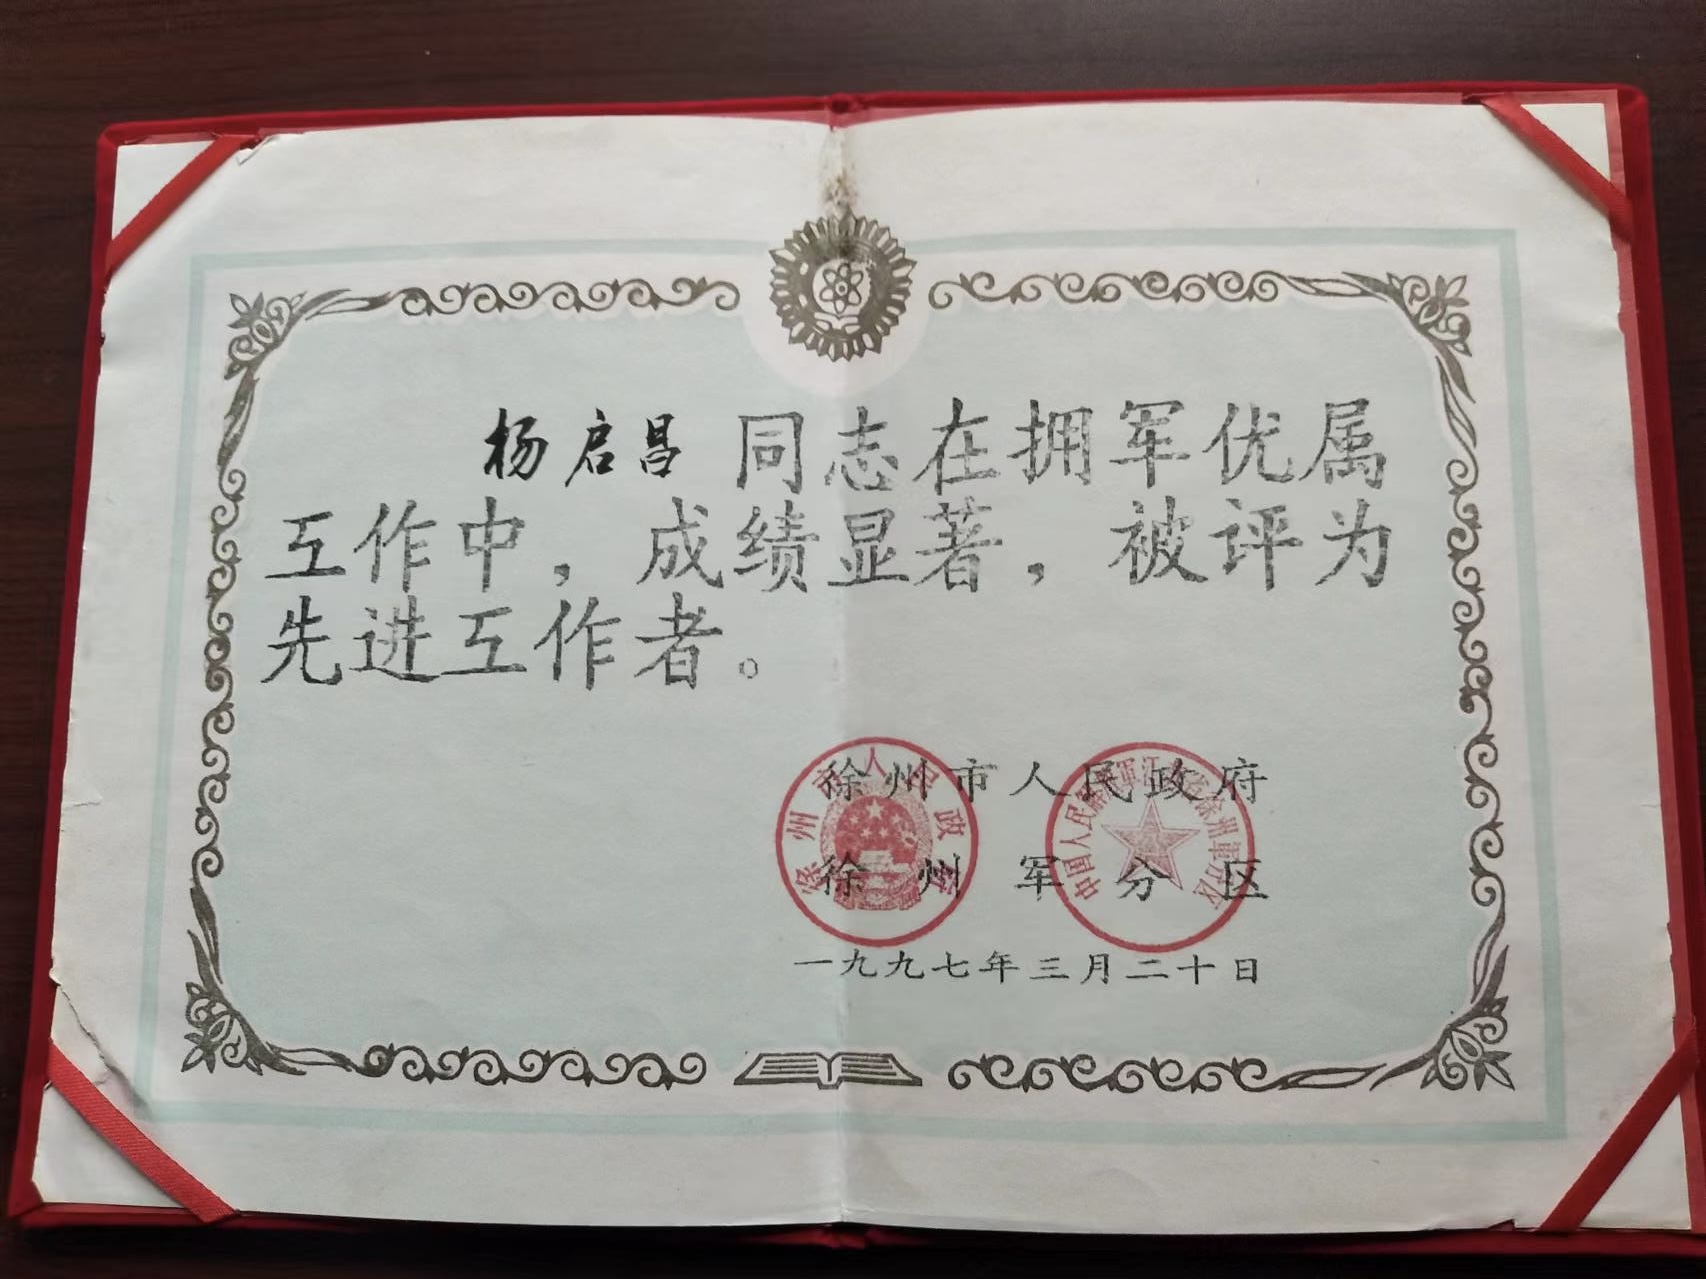 杨启昌同志在拥军优属
工作中，成绩显著，被评为
先进工作者。
徐州市人民政府
徐州军分区
一九九七年三月二十日
徐州市人民政府
中国人民解放军江苏省徐州军分区